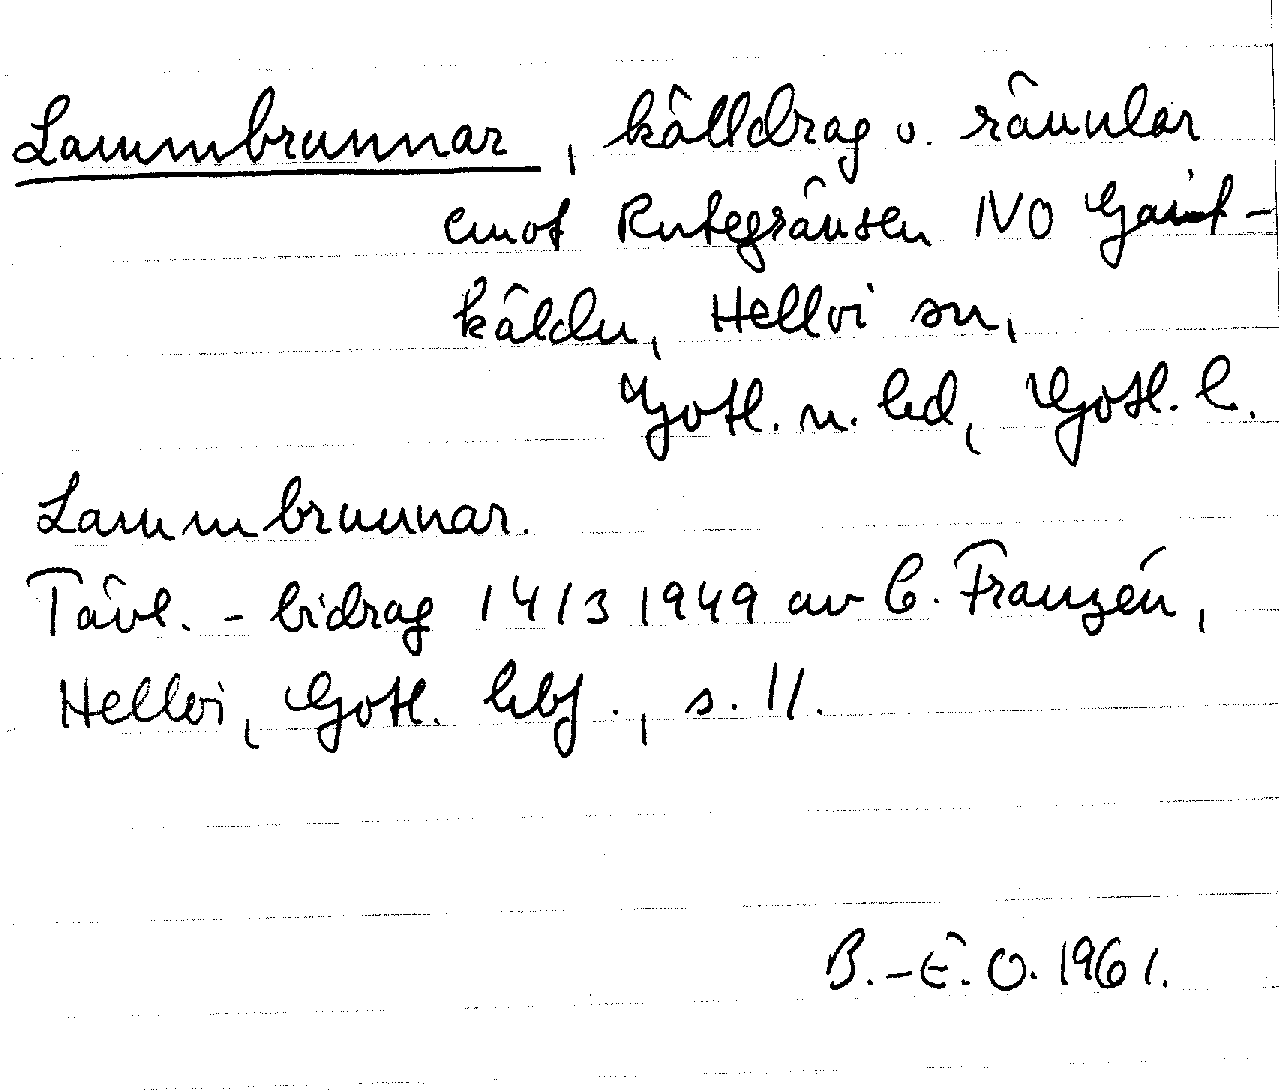 Lammbrunnar, källdrag o. rännlar
emot Rutegränsen NO Gaint-
käldu, Hellvi sn,
Gotl. n. hd, Gotl. l.
Lammbrunnar.
Tävl.-bidrag 14/3 1949 av C. Franzén,
Hellvi, Gotl. hbf., s. 11.
B.-E. O. 1961.